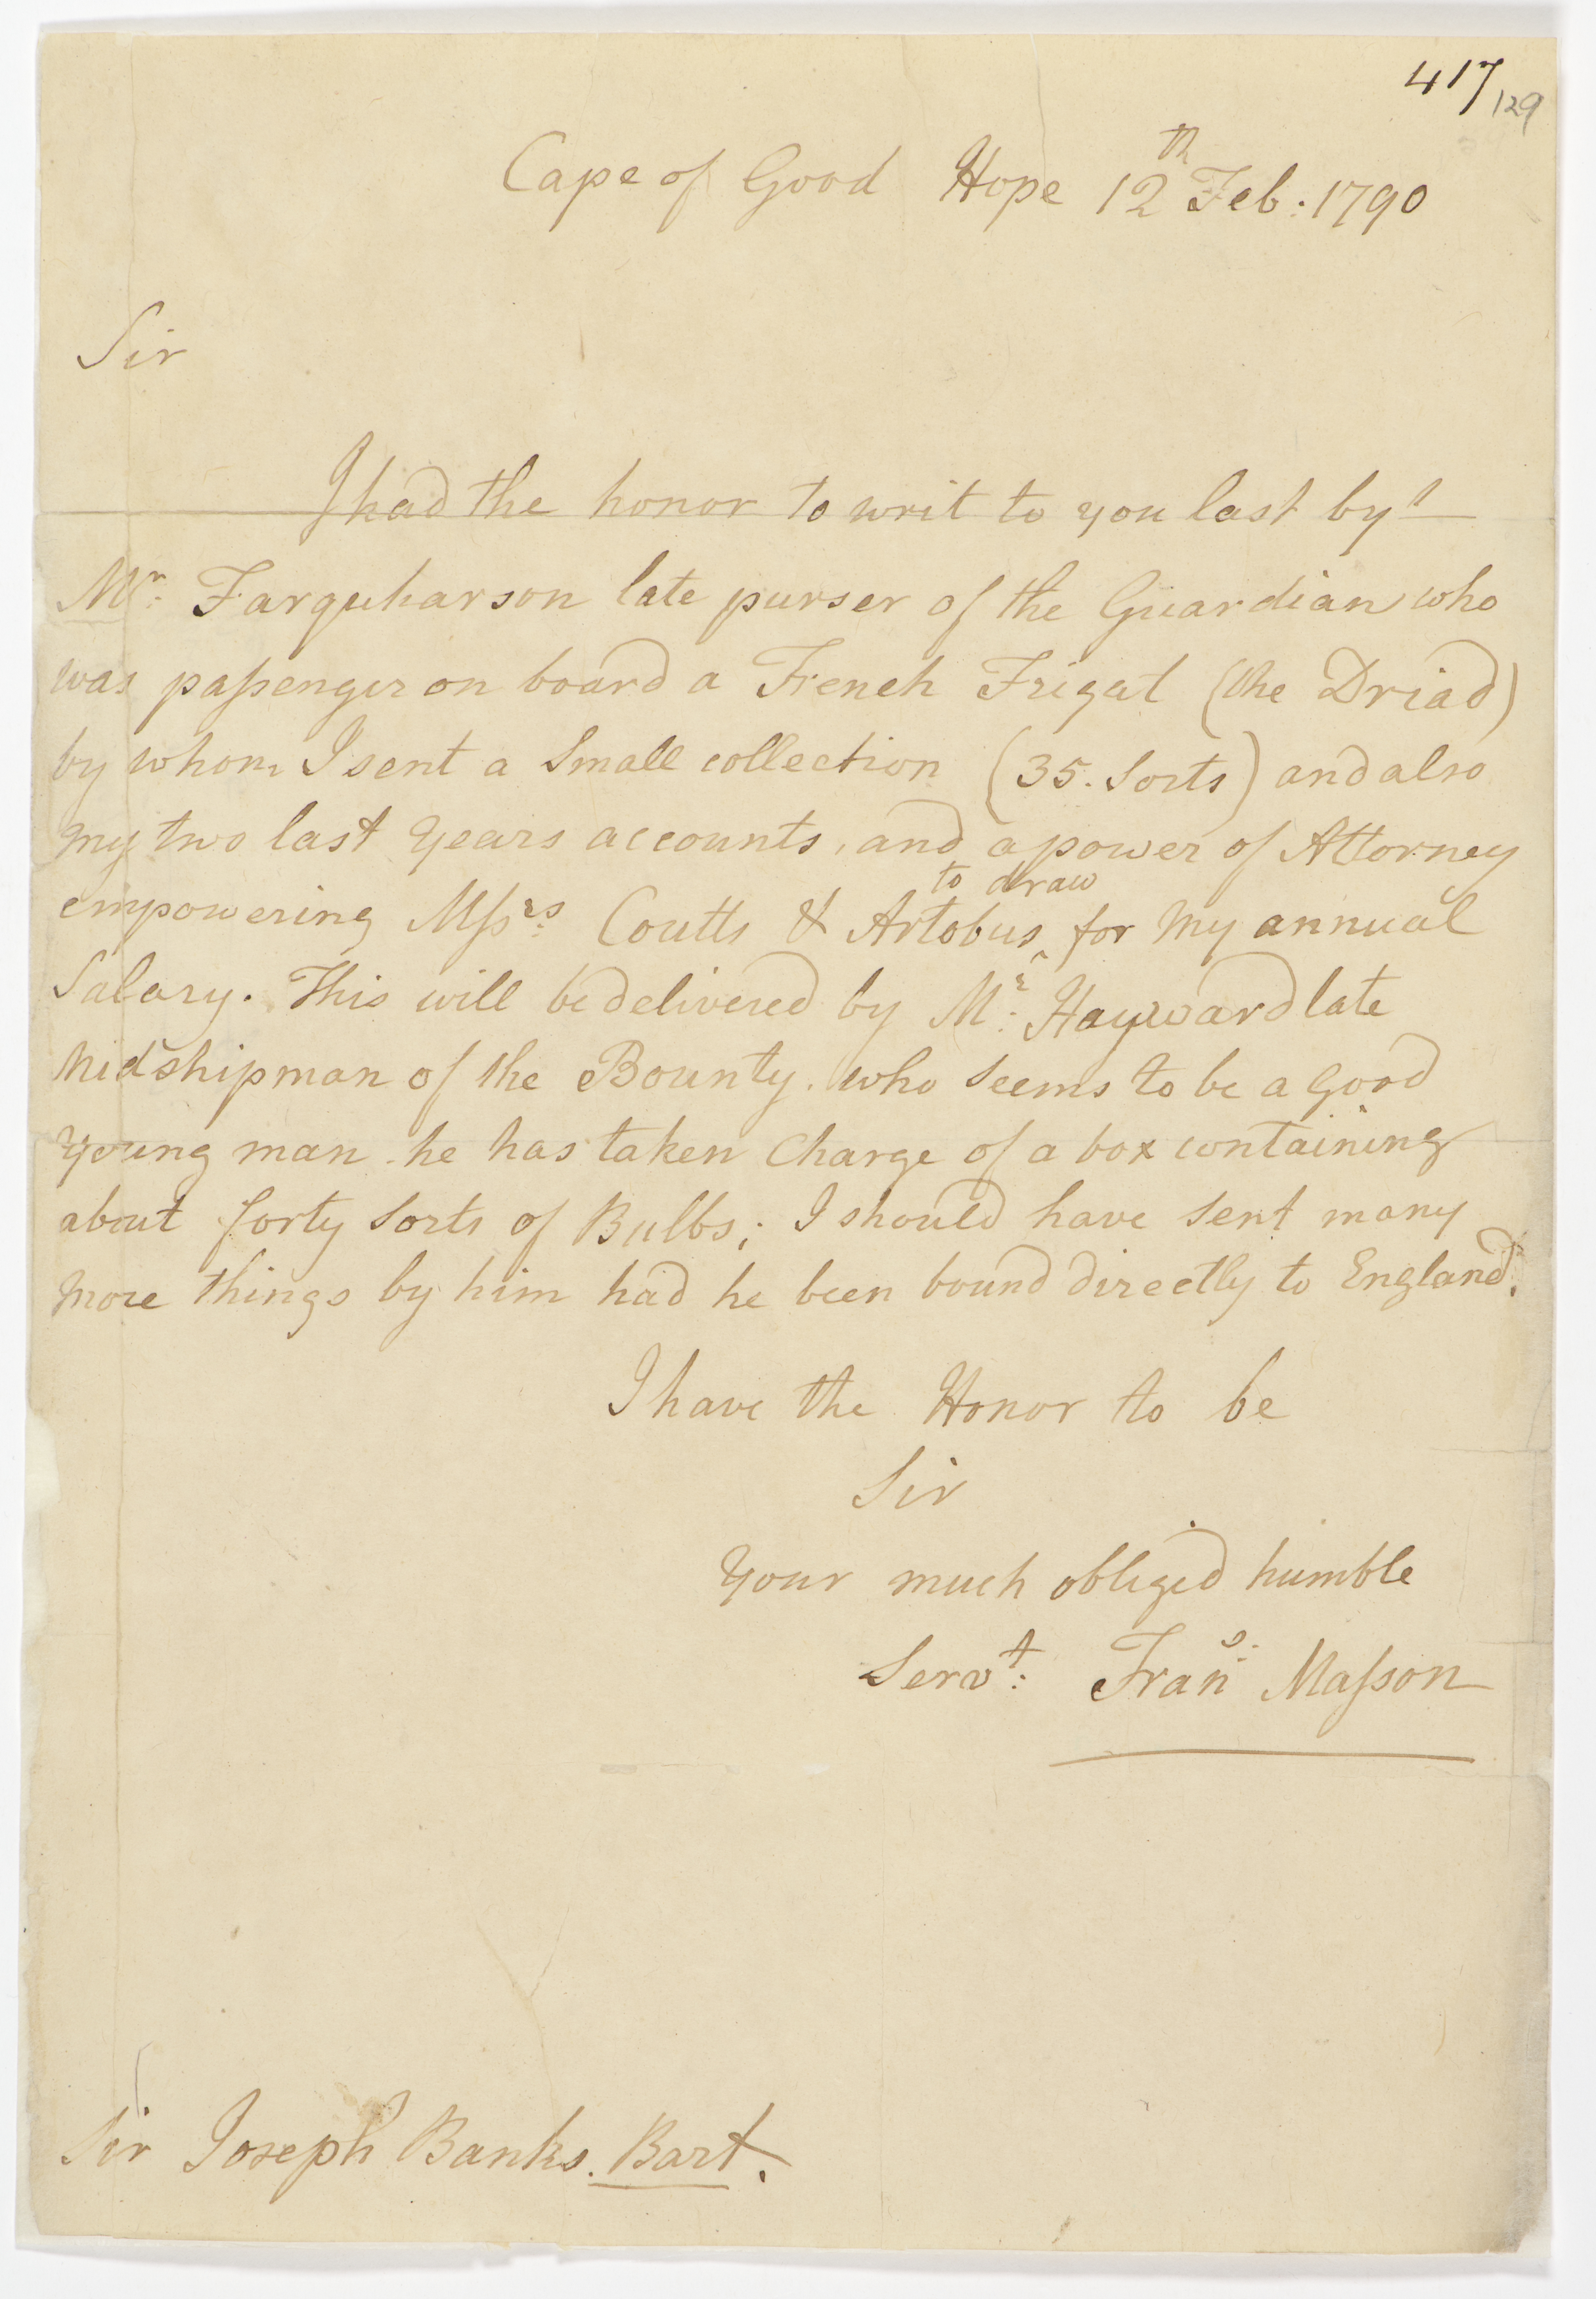 417
129
Cape of Good Hope 12th Feb: 1790
Sir
I had the honor to writ to you last by
Mr: Farquharson late purser of the Guardian who
was paſsenger on board a French Frigat (the Driad)
by whom I sent a Small collection (35. Sorts) and also
my two last Years accounts, and a power of Attorney
to draw
empowering Mſsrs: Coutts & Artobus ^ for my annual
Salary. This will be delivered by Mr: Hayward late
Midshipman of the Bounty. who Seems to be a Good
Young man. he has taken Charge of a box containing
about forty Sorts of Bulbs; I should have Sent many
More things by him had he been bound directly to England.
I have the Honor to be
Sir
Your much obliged humble
Servt: Frans: Maſson
Sir Joseph Banks. Bart.